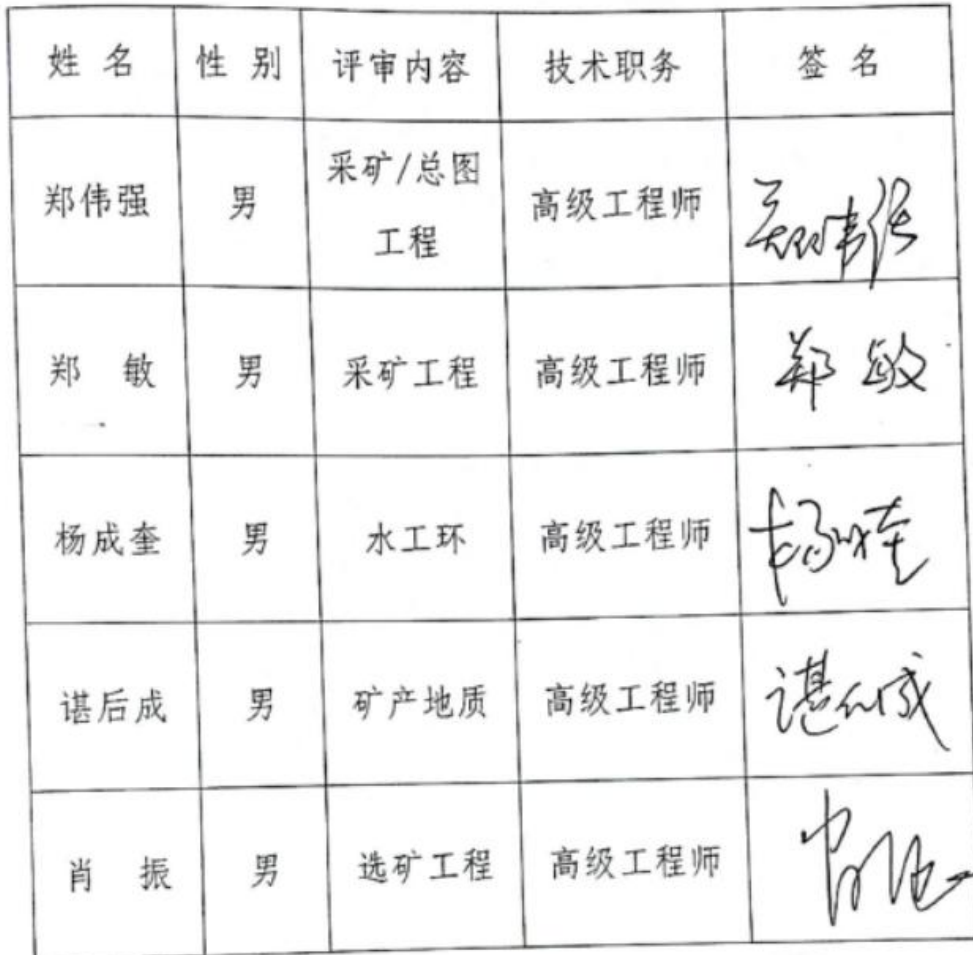 姓 名 性 别 评审内容 技术职务 签 名
郑伟强 男 采矿/总图 高级工程师 郑伟强
工程
郑 敏 男 采矿工程 高级工程师 郑敏
杨成奎 男 水工环 高级工程师 杨成奎
谌后成 男 矿产地质 高级工程师 谌后成
肖 振 男 选矿工程 高级工程师